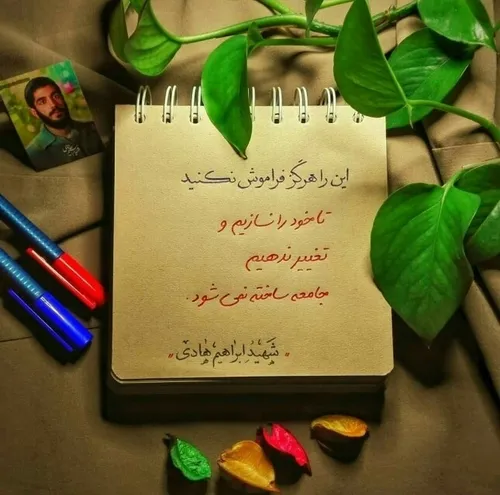 این را هرگز فراموش نکنید
تا خود را نسازیم و
تغییر ندهیم
جامعه ساخته نمی شود.
"شهید ابراهیم هادی"